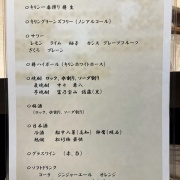 ○キリン一番搾り 膳 生
○キリングリーンズフリー (ノンアルコール)
○サワー
レモン ライム 柚子 カシス グレープフルーツ
ざくろ プレーン
○膳ハイボール (キリンホワイトホース)
○焼酎 ロック、水割り、ソーダ割り
麦焼酎
芋焼酎 富乃宝山 佐藤(黒)
○梅酒
(ロック、水割り、ソーダ割り)
○日本酒
冷酒
熱燗 松竹梅
○グラスワイン (赤、白)
○ソフトドリンク
コーラ ジンジャーエール オレンジ